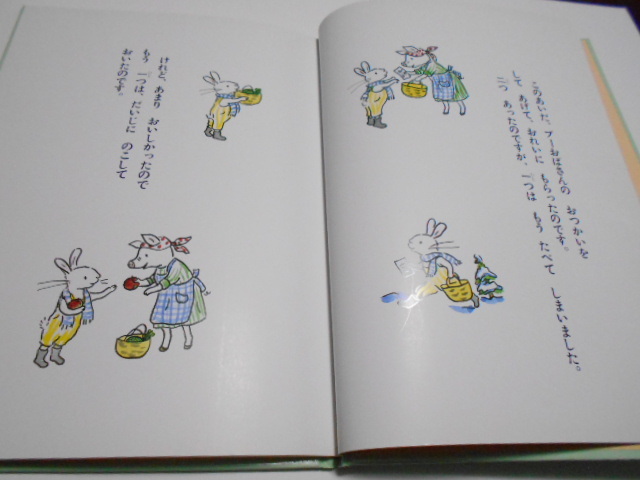 このあいだ、ブーおばさんの おつかいを
して あげて、おれいに もらったのです。
二つ あったのですが、一つは もう たべて しまいました。
けれど、あまり おいしかったので
もう 一つは、だいじに のこして
おいたのです。